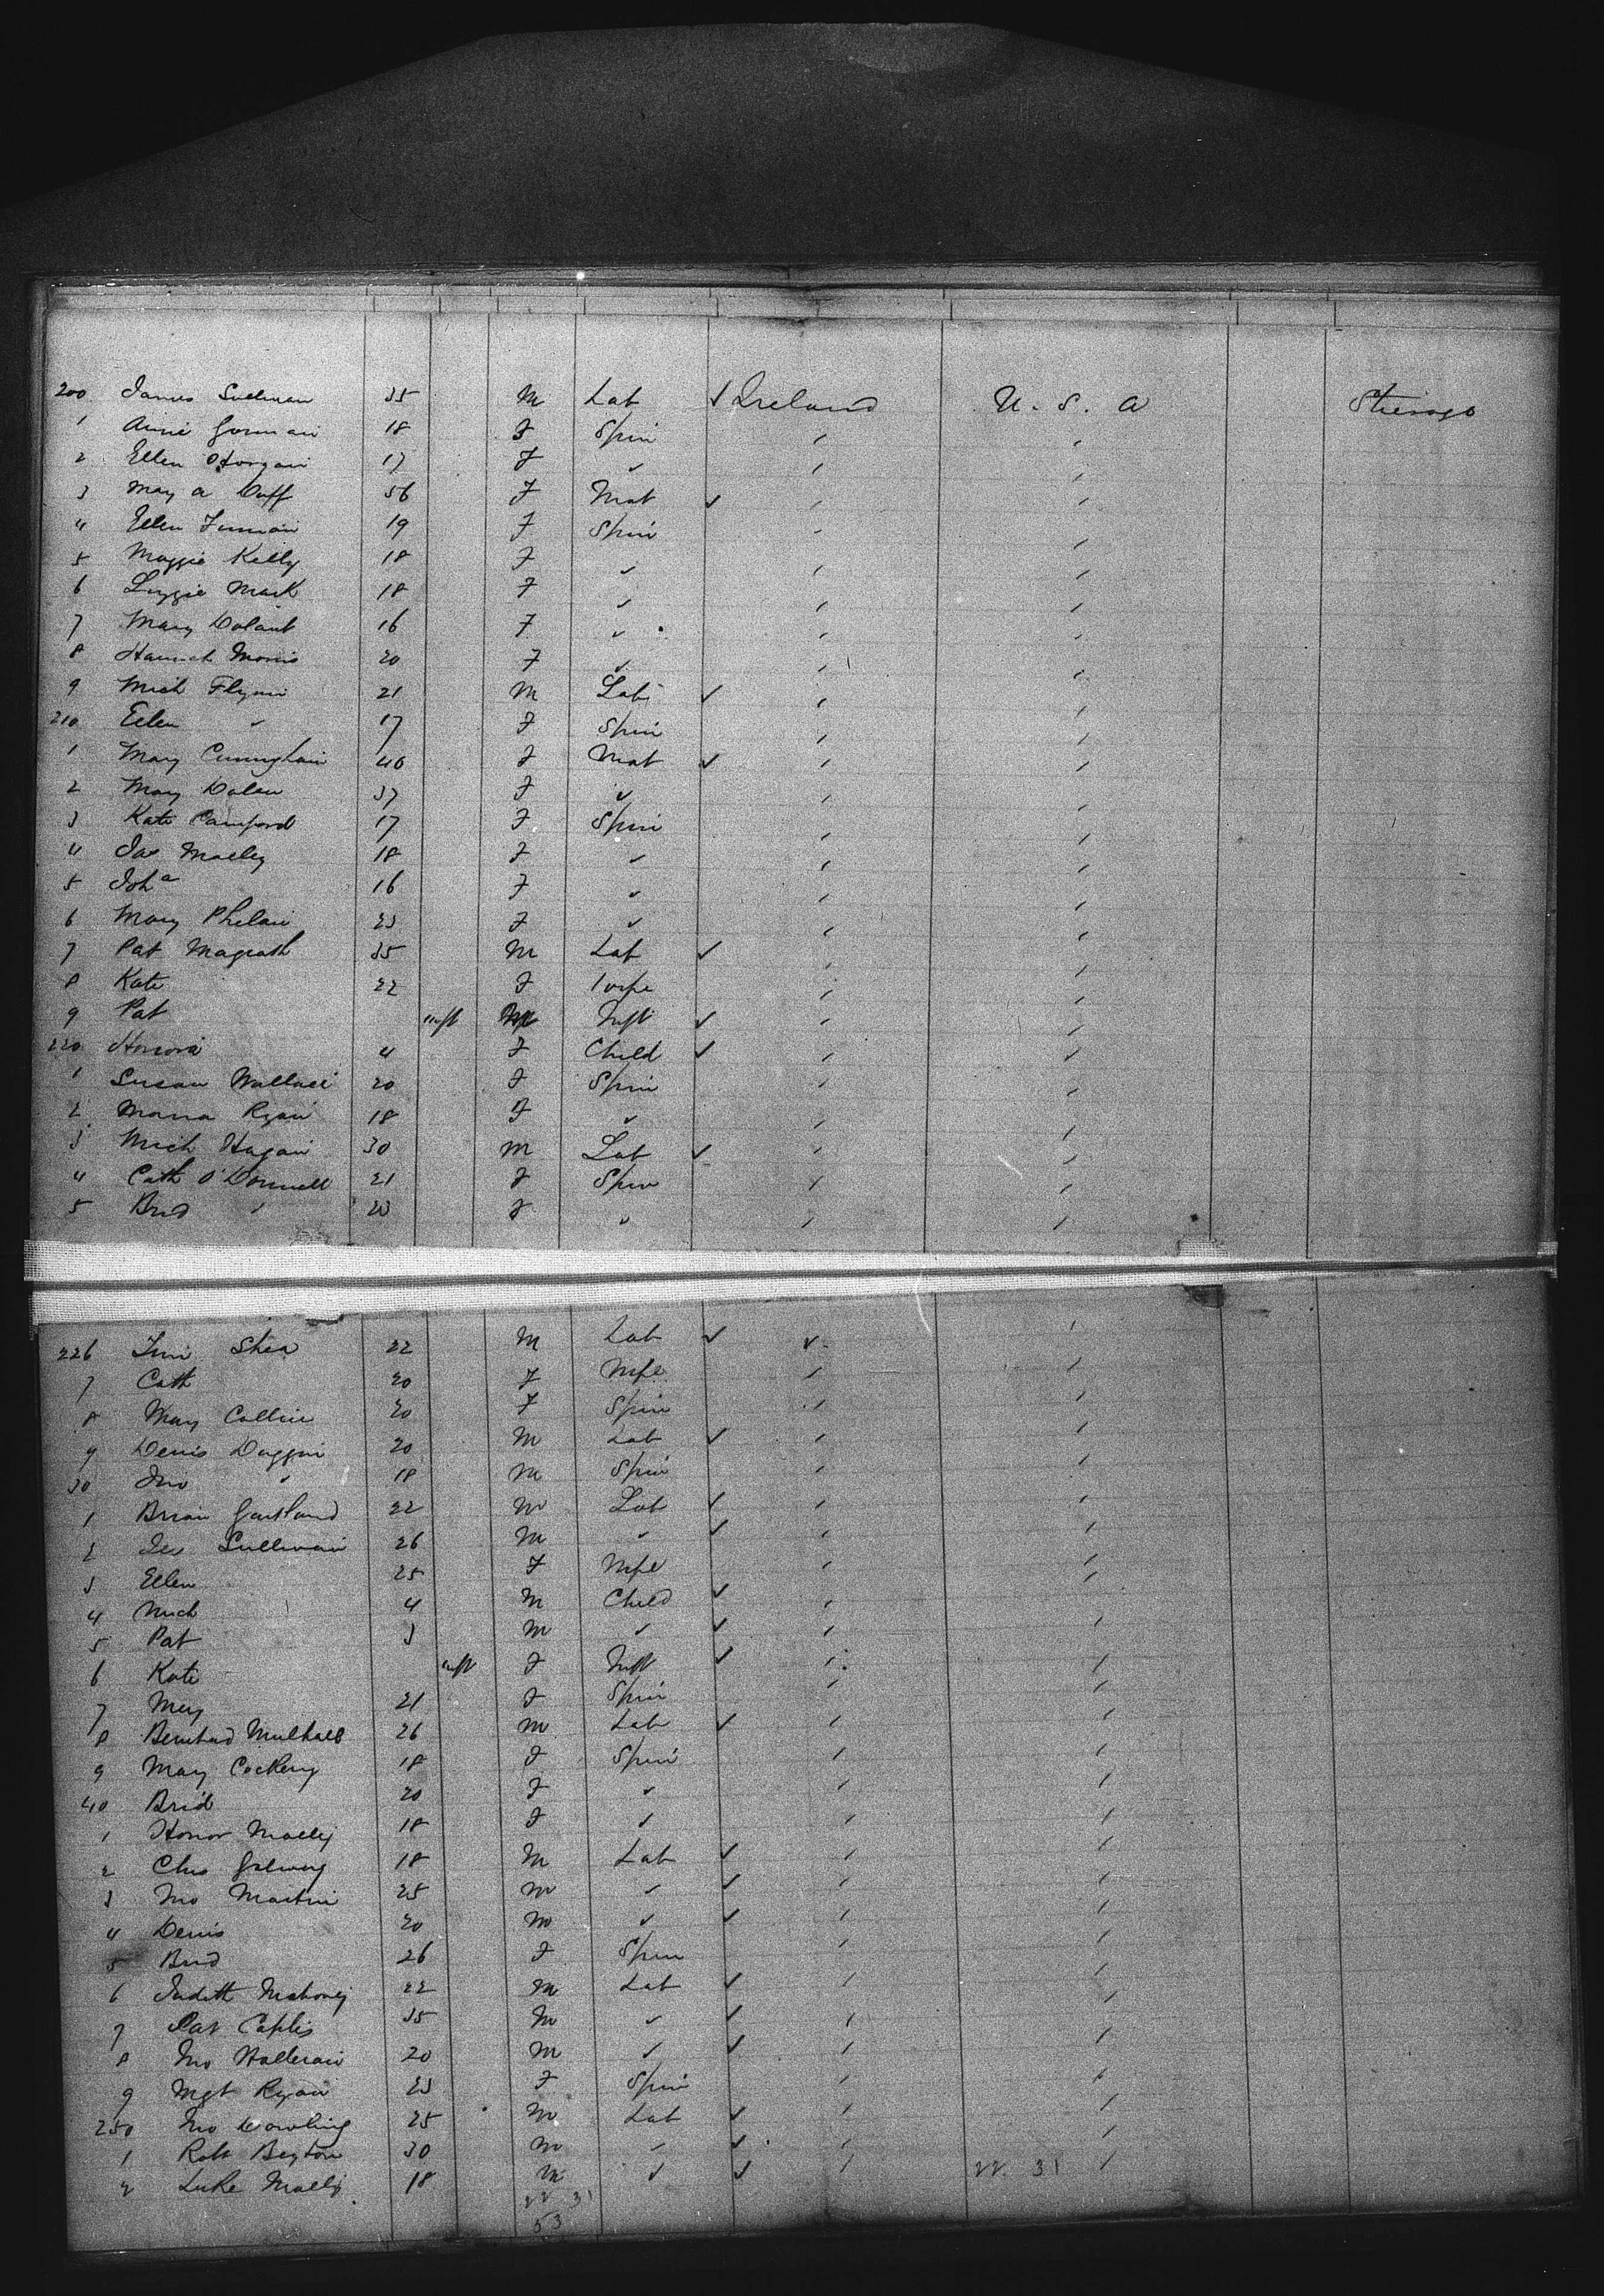 200 James Sullivan 35 M Lab ✓ Ireland U. S. A Steerage
1 Annie Gorman 18 F Spin
2 Ellen Horgan 17 F ✓
3 May a Duff 56 F Mat ✓
4 Ellen 19 F Spin
5 Maggie Kelly 18 F ✓
6 Lizzie Mack 18 F ✓
7 Mary 16 F ✓
8 Hannah Morris 20 F ✓
9 Mich Flynn 21 M Lab ✓
210 Ellen ✓ 17 F Spin
1 Mary Cunningham 40 F Mat ✓
2 Mary Dolan 37 F ✓
3 Kate 17 F Spin
4 Malley 18 F ✓
5 Joh a 16 F ✓
6 Mary Phelan 23 F ✓
7 Pat Magrath 35 M Lab ✓
8 Kate 22 F Wife
9 Pat inft M Inft ✓
220 Honora 4 F Child ✓
1 Susan Wallace 20 F Spin
2 Maria Ryan 18 F ✓
3 Mich Hagan 30 M Lab ✓
4 Cath O'Donnell 21 F Spin
5 Brid ✓ 20 F ✓
226 Shea 22 M Lab ✓ ✓
7 Cath 20 F Wife
8 May Collins 20 F Spin
9 Denis Duggan 20 M Lab ✓
30 Jno ✓ 18 M Spin
1 Brian Gartland 22 M Lab ✓
2 Sullivan 26 M ✓ ✓
3 Ellen 25 F Wife
4 Mich 4 M Child ✓
5 Pat 3 M ✓ ✓
6 Kate inft F Inft ✓
7 Mary 21 F Spin
8 Mulhall 26 M Lab ✓
9 May 18 F Spin
40 Brid 20 F ✓
1 Honor Malley 18 F ✓
2 Chs 18 M Lab ✓
3 Jno Martin 25 M ✓ ✓
4 Denis 20 M ✓ ✓
5 Brid 26 F Spin
6 Judith Mahoney 22 M Lab ✓
7 Pat Caplis 35 M ✓ ✓
8 Jno Halleran 20 M ✓ ✓
9 Mgt Ryan 23 F Spin
250 Jno Dowling 25 M Lab ✓
1 Robt 30 M ✓ ✓
2 Luke Malley 18 M ✓ ✓ 22 31
22 31
53